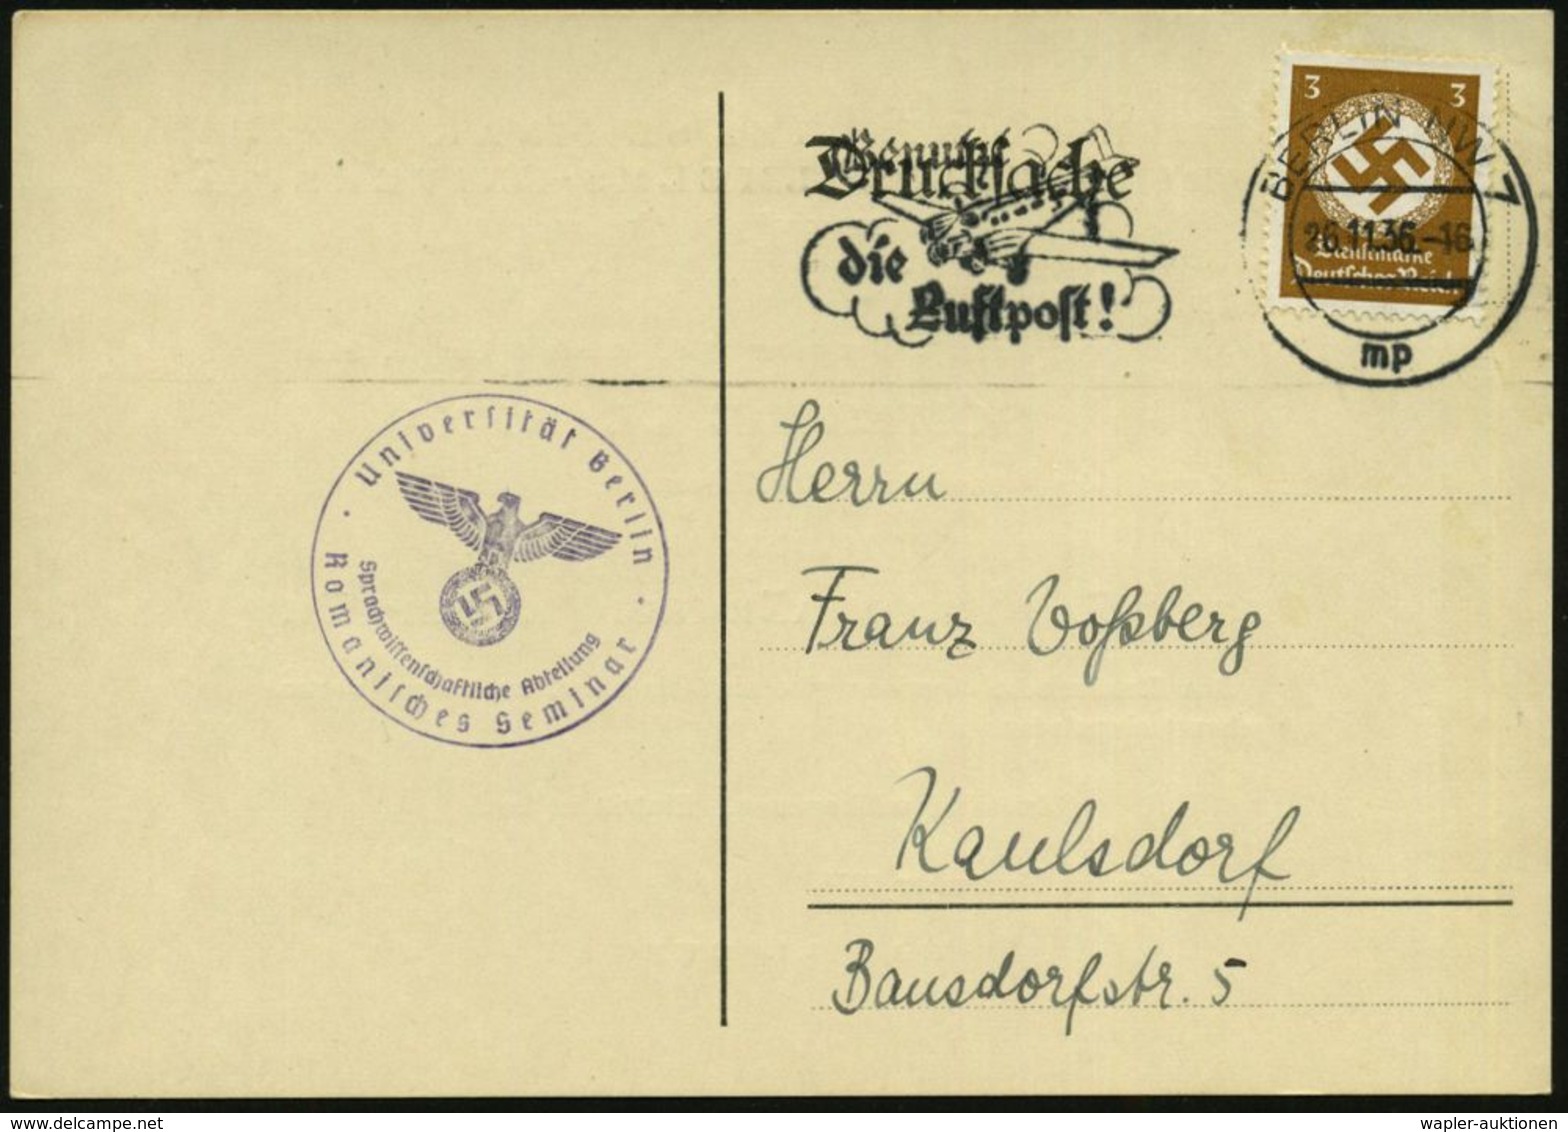 3 3
BERLIN NW 7
26.11.36.-16
Dienstmarke
Deutsches Reich
mp
Drucksache
Benutzt
die
Luftpost!
Universität Berlin
Romanisches Seminar
Sprachwissenschaftliche Abteilung
Herrn
Franz Voßberg
Kaulsdorf
Bausdorfstr. 5
wapler-auktionen